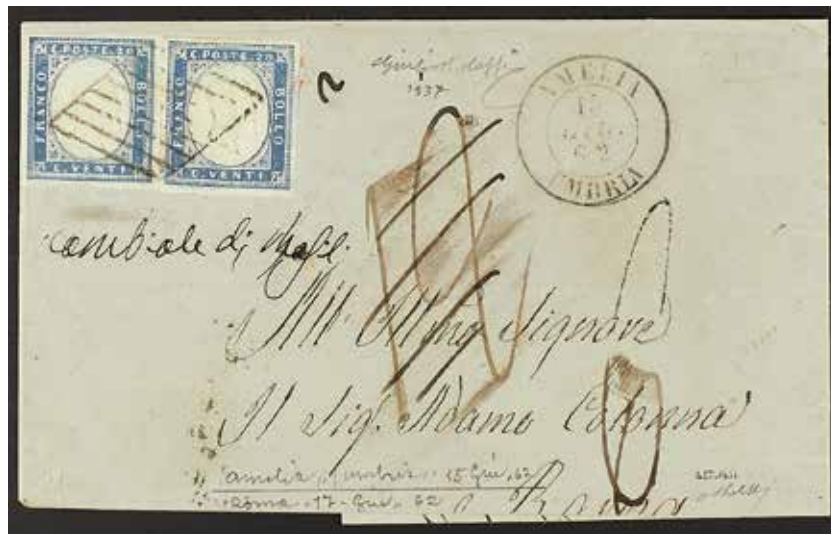 C. POSTE. 20
FRANCO
BOLLO
C. VENTI
C. POSTE. 20
FRANCO
BOLLO
C. VENTI
2
1937
AMELIA
15
62
UMBRIA
cambiale di
All' Illmo Signore
Il Sig. Adamo Colonna
Roma
Amelia Umbria 15 Giu. 62
Roma 17 Giu. 62